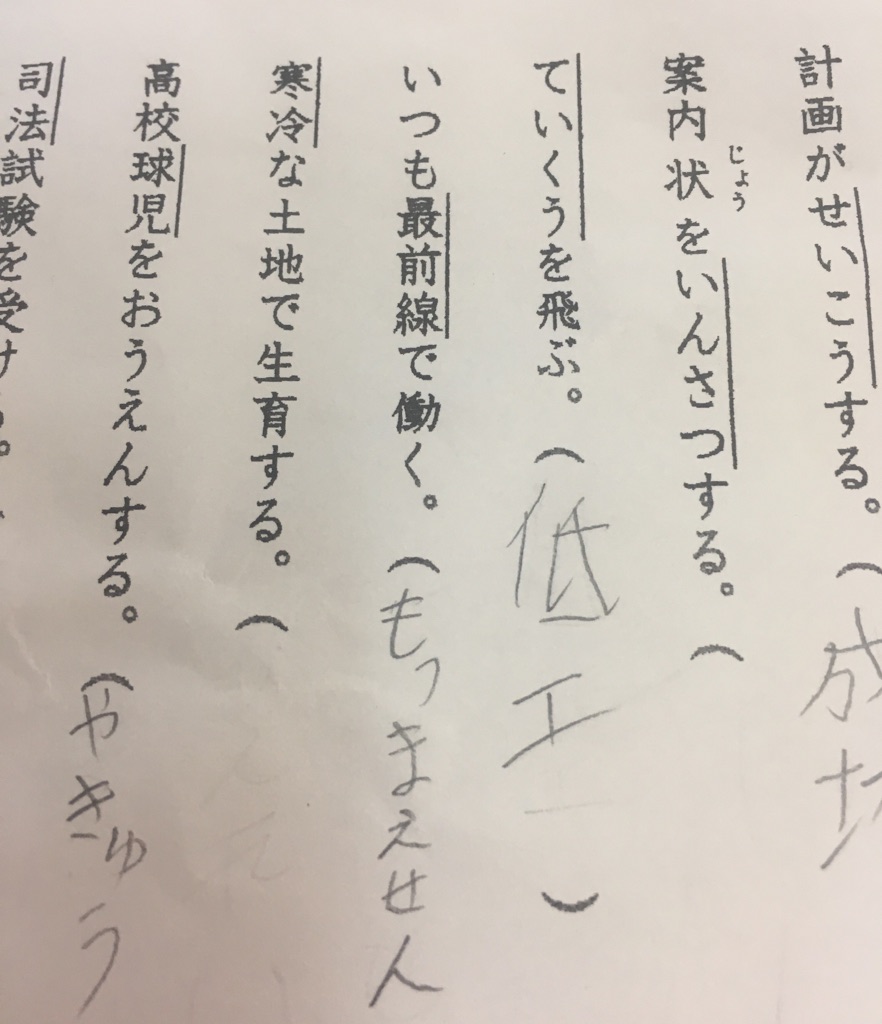 計画がせいこうする。（成
じょう
案内状をいんさつする。（
ていくうを飛ぶ。（低工）
いつも最前線で働く。（もっまえせん
寒冷な土地で生育する。（
高校球児をおうえんする。（やきゅう
司法試験を受ける。